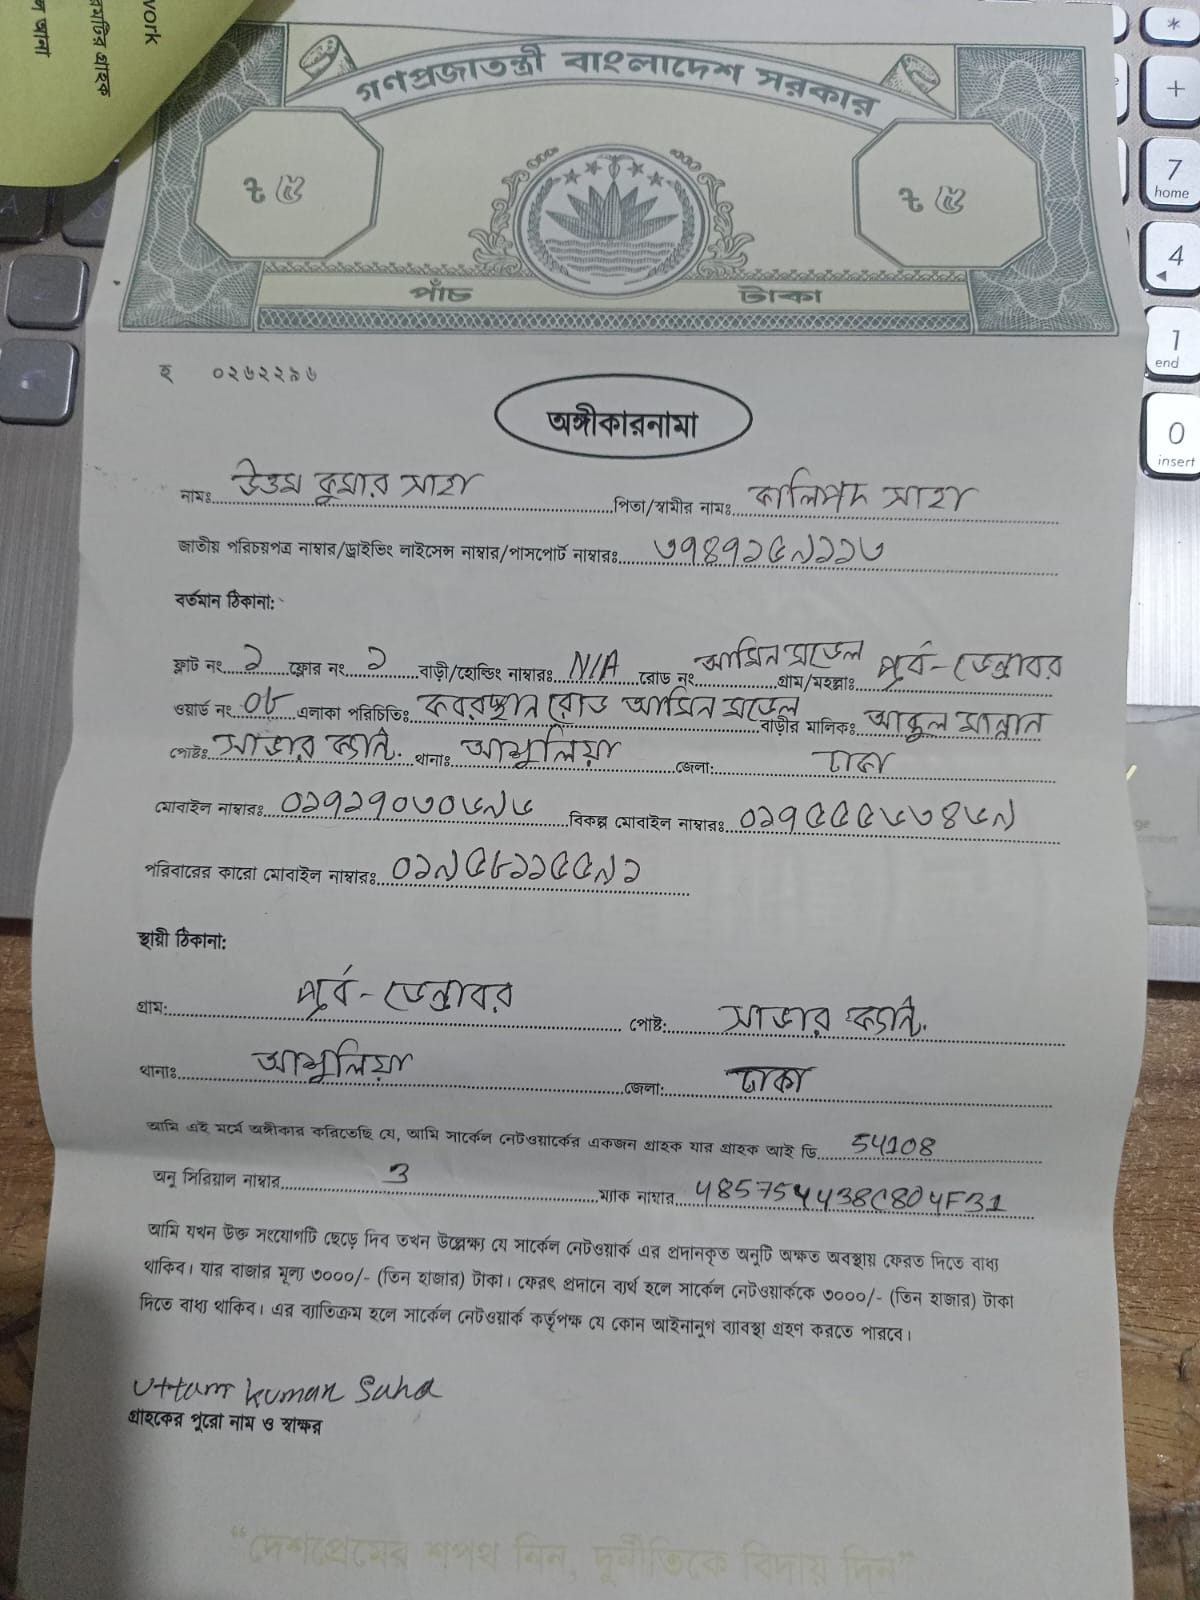 work
গণপ্রজাতন্ত্রী বাংলাদেশ সরকার
৳ ৫
৳ ৫
পাঁচ টাকা
হ ০২৬২২৯৬
অঙ্গীকারনামা
নামঃ উত্তম কুমার সাহা পিতা/স্বামীর নামঃ কালিপদ সাহা
জাতীয় পরিচয়পত্র নাম্বার/ড্রাইভিং লাইসেন্স নাম্বার/পাসপোর্ট নাম্বারঃ ৩৭৪৭১৫৯১১৩
বর্তমান ঠিকানা:
ফ্লাট নং ১ ফ্লোর নং ১ বাড়ী/হোল্ডিং নাম্বারঃ N/A রোড নং আমিন মডেল গ্রাম/মহল্লাঃ পূর্ব-ডেন্ডাবর
ওয়ার্ড নং ০৮ এলাকা পরিচিতিঃ কবরস্থান রোড আমিন মডেল বাড়ীর মালিকঃ আব্দুল মান্নান
পোষ্টঃ সাভার ক্যান্ট. থানাঃ আশুলিয়া জেলা: ঢাকা
মোবাইল নাম্বারঃ ০১৭১৭০৩০৬৯৬ বিকল্প মোবাইল নাম্বারঃ ০১৭৫৫৫৬৩৪৬৯
পরিবারের কারো মোবাইল নাম্বারঃ ০১৯৫৮১১৫৫৯১
স্থায়ী ঠিকানা:
গ্রাম: পূর্ব-ডেন্ডাবর পোষ্ট: সাভার ক্যান্ট.
থানাঃ আশুলিয়া জেলা: ঢাকা
আমি এই মর্মে অঙ্গীকার করিতেছি যে, আমি সার্কেল নেটওয়ার্কের একজন গ্রাহক যার গ্রাহক আই ডি 54108
অনু সিরিয়াল নাম্বার 3 ম্যাক নাম্বার 485754438C804F31
আমি যখন উক্ত সংযোগটি ছেড়ে দিব তখন উল্লেক্ষ্য যে সার্কেল নেটওয়ার্ক এর প্রদানকৃত অনুটি অক্ষত অবস্থায় ফেরত দিতে বাধ্য
থাকিব। যার বাজার মূল্য ৩০০০/- (তিন হাজার) টাকা। ফেরৎ প্রদানে ব্যর্থ হলে সার্কেল নেটওয়ার্ককে ৩০০০/- (তিন হাজার) টাকা
দিতে বাধ্য থাকিব। এর ব্যাতিক্রম হলে সার্কেল নেটওয়ার্ক কর্তৃপক্ষ যে কোন আইনানুগ ব্যাবস্থা গ্রহণ করতে পারবে।
Uttam kumar Saha
গ্রাহকের পুরো নাম ও স্বাক্ষর
“দেশপ্রেমের শপথ নিন, দুর্নীতিকে বিদায় দিন”
*
+
7
home
4
1
end
0
insert